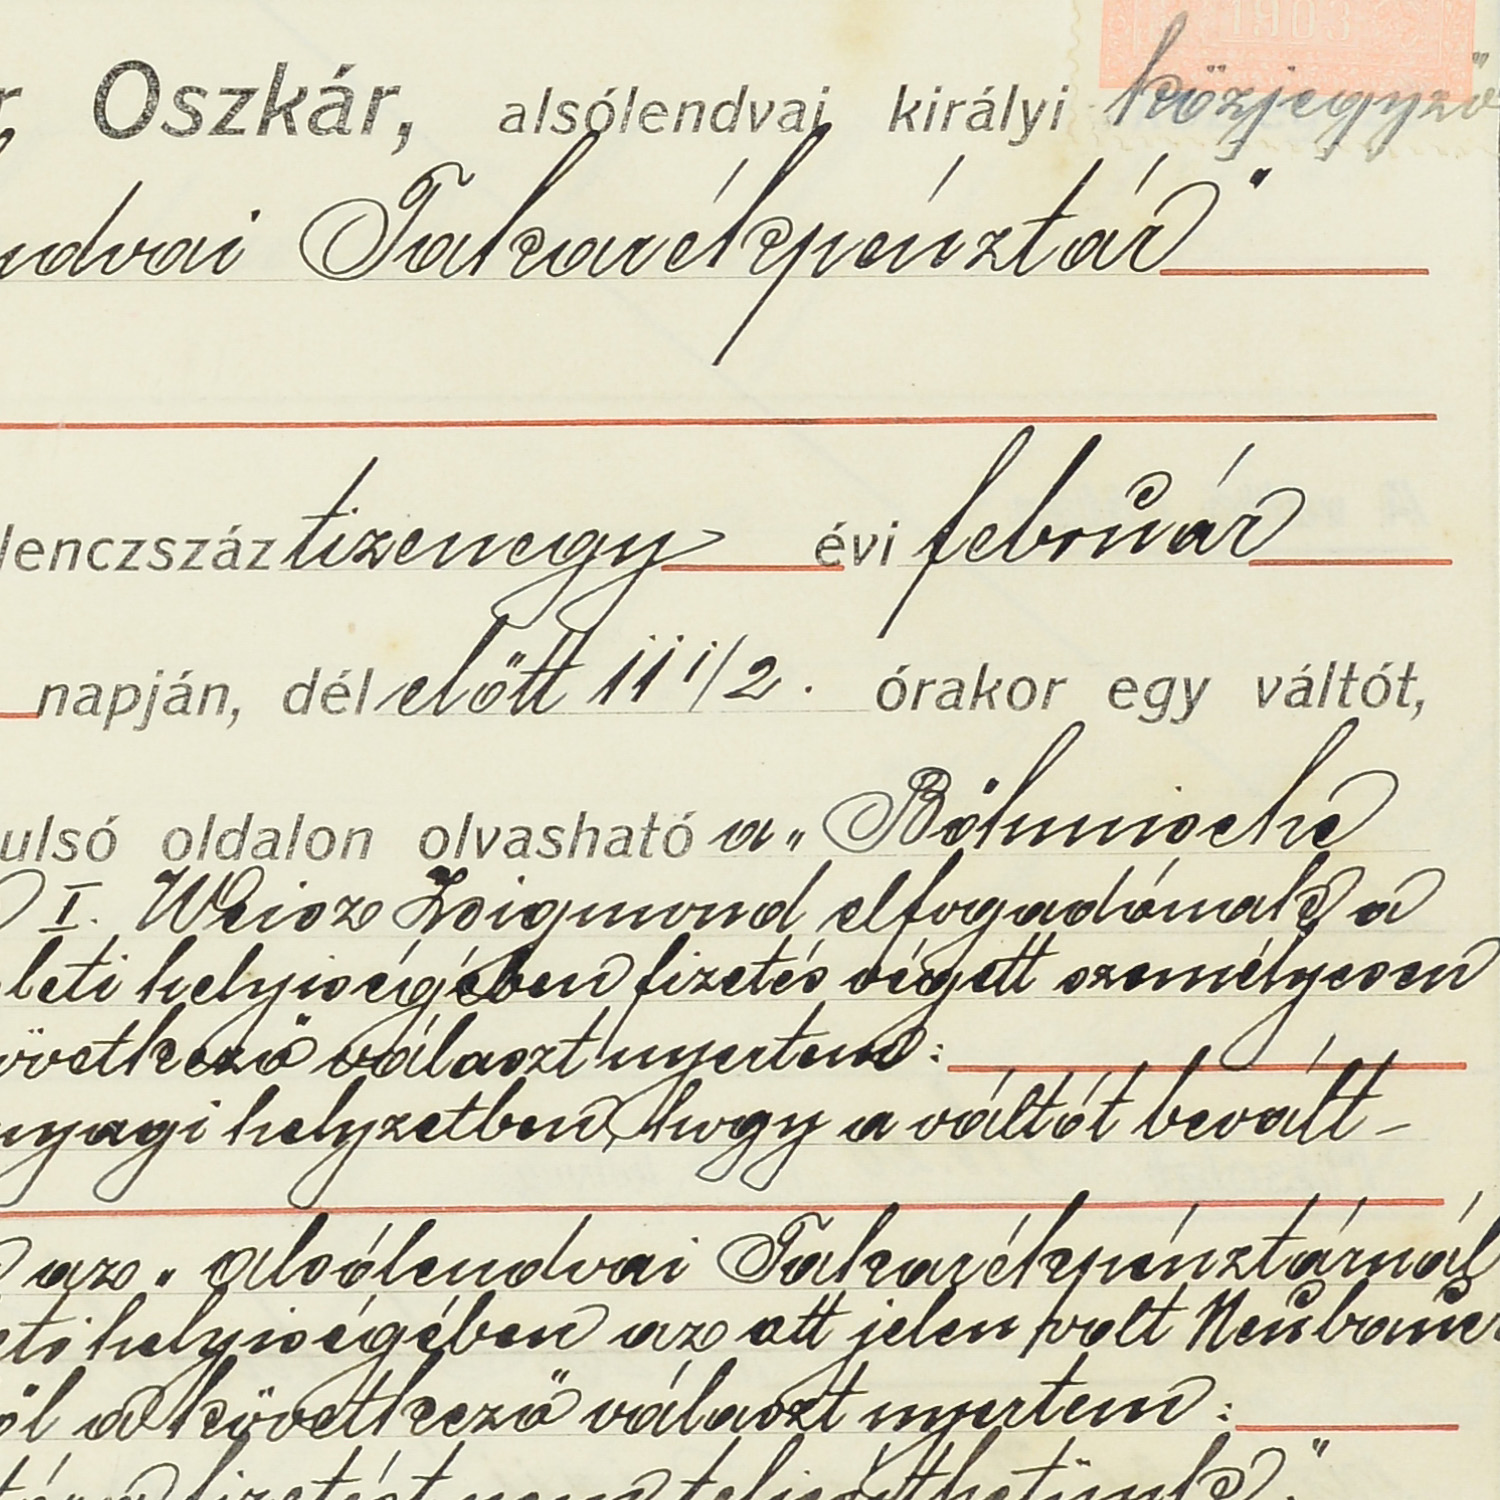 1903
r Oszkár, alsólendvai királyi közjegyző
ndvai Takarékpénztár"
lenczszáz tizenegy évi február
napján, délelőtt 11 1/2. órakor egy váltót,
ulsó oldalon olvasható a „Böhmische
I. Weisz Zsigmond elfogadónak a
leti helyiségében fizetés végett személyesen
övetkező választ nyertem:
nyagi helyzetben, hogy a váltót bevált-
az „Alsólendvai Takarékpénztárnál
eti helyiségében az ott jelen volt Neubauer
ől a következő választ nyertem:
fizetést nem teljesíthetünk."